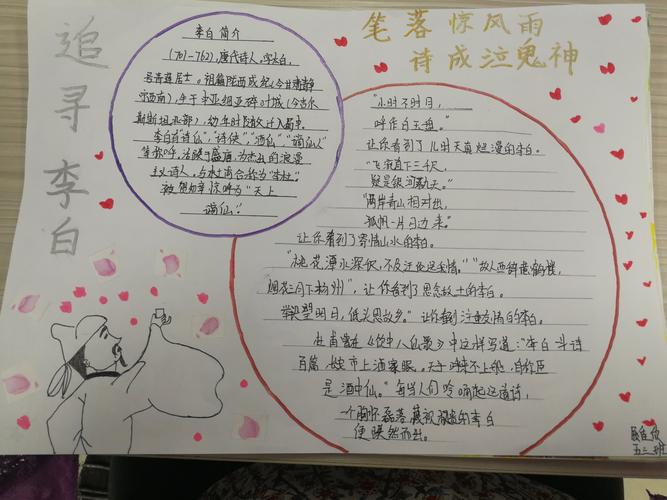 追寻李白
笔落惊风雨
诗成泣鬼神
李白简介
(701-762),唐代诗人,字太白,
号青莲居士。祖籍陇西成纪(今甘肃静
宁西南),生于中亚细亚碎叶城(今吉尔
斯斯坦北部),幼年时随父迁入蜀中。
李白有"诗仙","诗侠","酒仙","谪仙人"
等称呼,活跃于盛唐,为杰出的浪漫
主义诗人。与杜甫合称为"李杜"。
被贺知章惊呼为"天上
谪仙"!
"小时不识月,
呼作白玉盘。"
让你看到了儿时天真烂漫的李白。
"飞流直下三千尺,
疑是银河落九天。"
"两岸青山相对出,
孤帆一片日边来。"
让你看到了寄情山水的李白。
"桃花潭水深千尺,不及汪伦送我情。""故人西辞黄鹤楼,
烟花三月下扬州",让你看到了思念故土的李白。
举头望明月,低头思故乡。"让你看到注重友情的李白。
杜甫曾在《饮中八仙歌》中这样写道:"李白斗诗
百篇,长安市上酒家眠。天子呼来不上船,自称臣
是酒中仙。"每当人们吟诵起这首诗,
一个胸怀磊落藐视权贵的李白
便跃然而出。
五三班